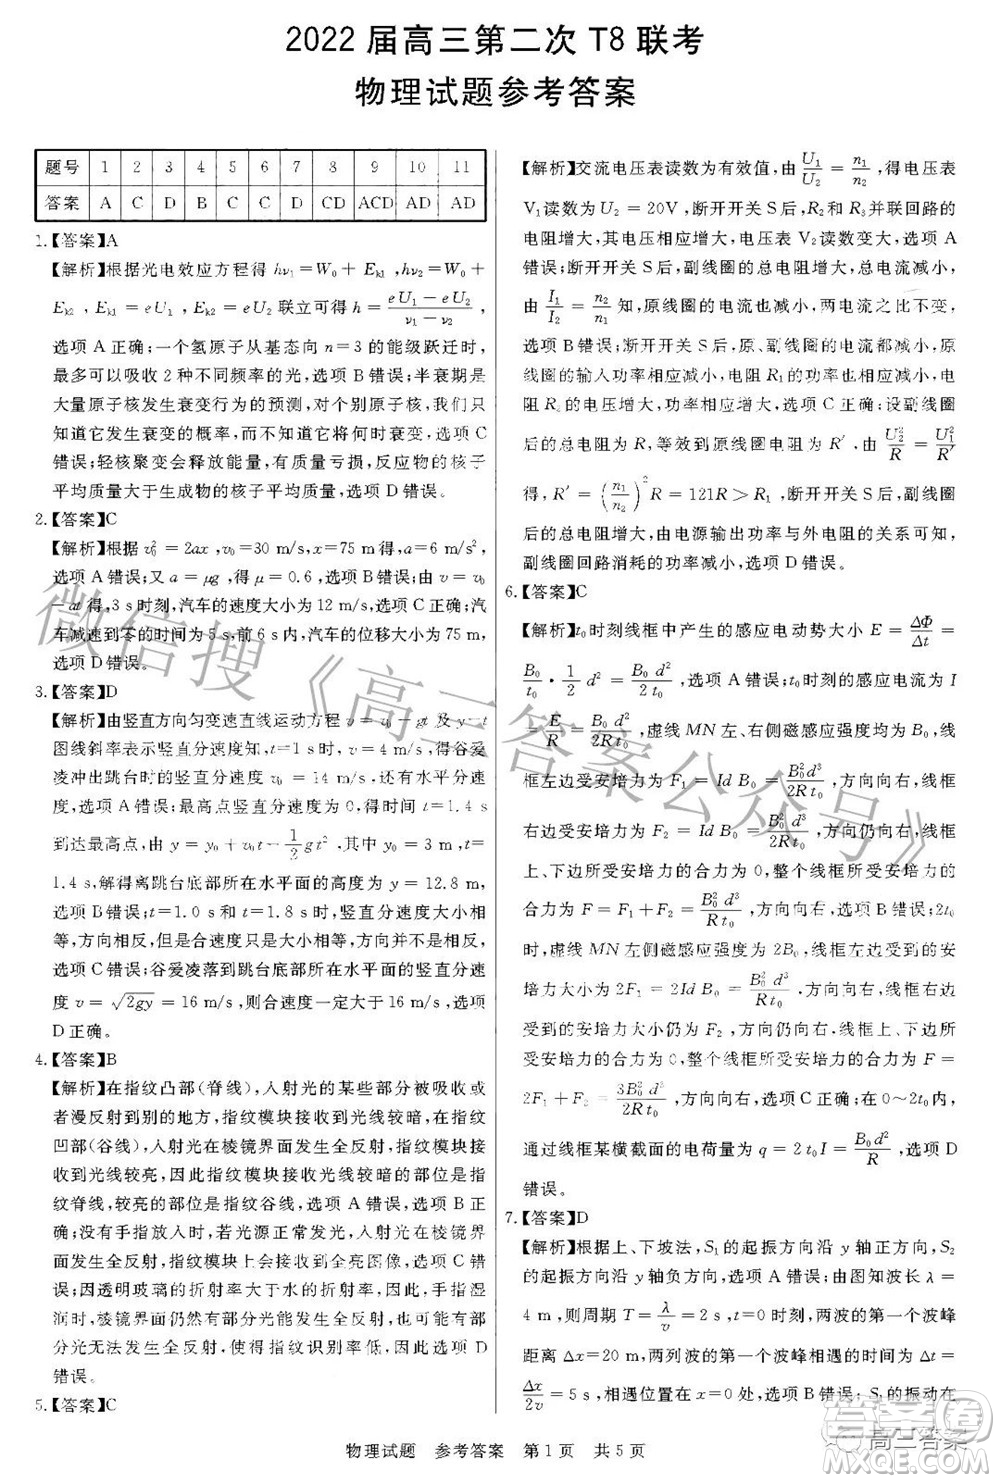 2022 届高三第二次 T8 联考
物理试题参考答案
题号 1 2 3 4 5 6 7 8 9 10 11
答案 A C D B C C D CD ACD AD AD
1.【答案】A
【解析】根据光电效应方程得 hν₁=W₀+E_k1,hν₂=W₀+
E_k2,E_k1=eU₁,E_k2=eU₂ 联立可得 h=(eU₁−eU₂)/(ν₁−ν₂),
选项 A 正确;一个氢原子从基态向 n=3 的能级跃迁时,
最多可以吸收 2 种不同频率的光,选项 B 错误;半衰期是
大量原子核发生衰变行为的预测,对个别原子核,我们只
知道它发生衰变的概率,而不知道它何时衰变,选项 C
错误;轻核聚变会释放能量,有质量亏损,反应物的核子
平均质量大于生成物的核子平均质量,选项 D 错误。
2.【答案】C
【解析】根据 v₀²=2ax,v₀=30 m/s,x=75 m 得 a=6 m/s²,
选项 A 错误;又 a=μg,得 μ=0.6,选项 B 错误;由 v=v₀
−at 得,3 s 时刻,汽车的速度大小为 12 m/s,选项 C 正确;汽
车减速到零的时间为 5 s,前 6 s 内,汽车的位移大小为 75 m,
选项 D 错误。
3.【答案】D
【解析】由竖直方向匀变速直线运动方程 v=v₀−gt 及 y−t
图线斜率表示竖直分速度知,t=1 s 时,v=4 m/s,得谷爱
凌冲出跳台时的竖直分速度 v₀=14 m/s,还有水平分速
度,选项 A 错误;最高点竖直分速度为 0,经时间 t=1.4 s
到达最高点,由 y=y₀+v₀t−1/2 gt²,其中 y₀=3 m,t=
1.4 s,解得离跳台底部所在水平面的高度为 y=12.8 m,
选项 B 错误;t=1.0 s 和 t=1.8 s 时,竖直分速度大小相
等,方向相反,但是合速度大小相等,方向并不相反,选
项 C 错误;谷爱凌落到跳台底部所在水平面的竖直分速
度 v=√2gy=16 m/s,则合速度一定大于 16 m/s,选项
D 正确。
4.【答案】B
【解析】在指纹凸部(脊线),入射光的某些部分被吸收或
者漫反射到别的地方,指纹模块接收到光线较暗,在指纹
凹部(谷线),入射光在棱镜界面发生全反射,指纹模块接
收到光线较亮,因此,指纹模块接收到光线较暗的部位是
指纹脊线,较亮的部位是指纹谷线,选项 A 错误,选项 B 正
确;没有手指放上去时,若光源正常发光,入射光在棱镜界
面发生全反射,指纹模块上会接收到全部的光,选项 C 错
误;因透明玻璃的折射率大于水的折射率,手指湿
润时,棱镜界面仍然有部分光发生全反射,也可能有部
分光无法发生全反射,使得指纹识别率低,选项 D
错误。
5.【答案】C
【解析】交流电压表读数为有效值,由 U₁/U₂=n₁/n₂,得电压表
V₁ 读数为 U₂=20V,断开开关 S 后,R₂ 和 R₃ 并联回路的
电阻增大,其电压相应增大,电压表 V₂ 读数变大,选项 A
错误;断开开关 S 后,副线圈的总电阻增大,总电流减小,
由 I₁/I₂=n₂/n₁ 知,原线圈的电流也减小,两电流之比不变,
选项 B 错误;断开开关 S 后,原、副线圈电流减小,原、副
线圈的输入功率相应减小,而电阻 R₁ 的电压减小,即
电阻 R₁ 的电功率减小,选项 C 正确;设副线圈
后的总电阻为 R,等效到原线圈电阻为 R′,由 U₂²/R=U₁²/R′
得,R′=(n₁/n₂)²R=121R>R₁,断开开关 S 后,副线圈的总
电阻增大,由电源输出功率与外电阻的关系可知,
副线圈回路消耗的功率减小,选项 D 错误。
6.【答案】C
【解析】t₀ 时刻线框中产生的感应电动势大小 E=ΔΦ/Δt=
B₀/t₀·1/2 d²=B₀d²/2t₀,选项 A 错误;t₀ 时刻的感应电流为 I
=E/R=B₀d²/2Rt₀,虚线 MN 左、右侧磁感应强度均为 B₀,线
框左边受安培力为 F₁=IdB₀=B₀²d³/2Rt₀,方向向右,线框
右边受安培力为 F₂=IdB₀=B₀²d³/2Rt₀,方向仍向右,线框
上、下边所受安培力的合力为 0,整个线框所受安培力的
合力为 F=F₁+F₂=B₀²d³/Rt₀,方向向右,选项 B 错误;2t₀
时,虚线 MN 左侧磁感应强度为 2B₀,线框左边受安培力
大小为 2F₁=2IdB₀=B₀²d³/Rt₀,方向仍向右,线框右边
受到的安培力大小仍为 F₂,方向仍向右,线框上、下边所受
安培力的合力为 0,整个线框所受安培力的合力为 F=
2F₁+F₂=3B₀²d³/2Rt₀,方向向右,选项 C 正确;在 0~2t₀ 内,
通过线框某横截面的电荷量为 q=2t₀I=B₀d²/R,选项 D
错误。
7.【答案】D
【解析】根据上、下坡法,S₁ 的起振方向沿 y 轴正方向,S₂
的起振方向沿 y 轴负方向,选项 A 错误;由图知波长 λ=
4 m,则周期 T=λ/v=2 s,t=0 时刻,两波的第一个波峰
距离 Δx=20 m,两列波的第一个波峰相遇时间为 Δt=
Δx/2v=5 s,相遇位置在 x=0 处,选项 B 错误;S₁ 在振动
物理试题 参考答案 第 1 页 共 5 页
微信搜《高三答案公众号》
高三答案